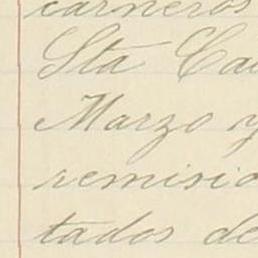 carneros
Sta Ca
Marzo y
remisio
tados de